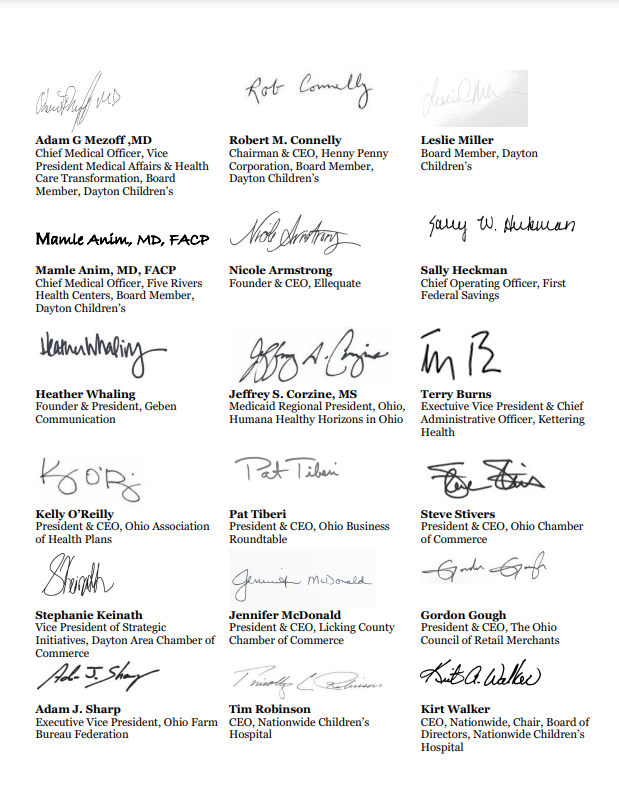 Rob Connelly
Adam G Mezoff ,MD
Chief Medical Officer, Vice
President Medical Affairs & Health
Care Transformation, Board
Member, Dayton Children's
Robert M. Connelly
Chairman & CEO, Henny Penny
Corporation, Board Member,
Dayton Children's
Leslie Miller
Board Member, Dayton
Children's
Mamle Anim, MD, FACP
Nicole Armstrong
Sally W. Heckman
Mamle Anim, MD, FACP
Chief Medical Officer, Five Rivers
Health Centers, Board Member,
Dayton Children's
Nicole Armstrong
Founder & CEO, Ellequate
Sally Heckman
Chief Operating Officer, First
Federal Savings
Heather Whaling
Jeffrey S. Corzine
Heather Whaling
Founder & President, Geben
Communication
Jeffrey S. Corzine, MS
Medicaid Regional President, Ohio,
Humana Healthy Horizons in Ohio
Terry Burns
Exectuive Vice President & Chief
Administrative Officer, Kettering
Health
Pat Tiberi
Steve Stivers
Kelly O'Reilly
President & CEO, Ohio Association
of Health Plans
Pat Tiberi
President & CEO, Ohio Business
Roundtable
Steve Stivers
President & CEO, Ohio Chamber
of Commerce
Jennifer McDonald
Gordon Gough
Stephanie Keinath
Vice President of Strategic
Initiatives, Dayton Area Chamber of
Commerce
Jennifer McDonald
President & CEO, Licking County
Chamber of Commerce
Gordon Gough
President & CEO, The Ohio
Council of Retail Merchants
Adam J. Sharp
Timothy C Robinson
Kirt A. Walker
Adam J. Sharp
Executive Vice President, Ohio Farm
Bureau Federation
Tim Robinson
CEO, Nationwide Children's
Hospital
Kirt Walker
CEO, Nationwide, Chair, Board of
Directors, Nationwide Children's
Hospital